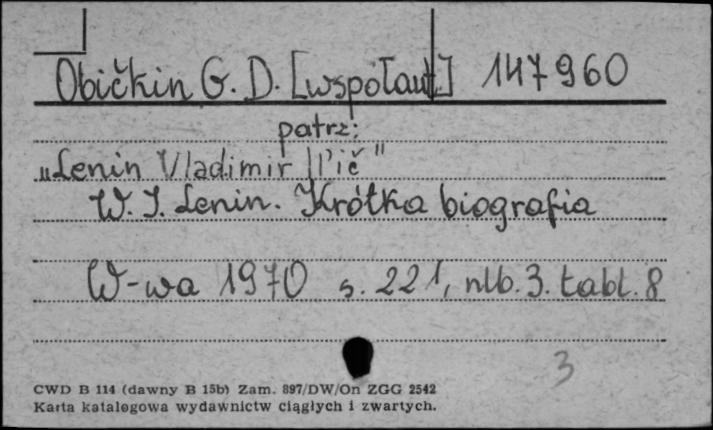 Običkin G. D. [współaut.] 147960
patrz:
„Lenin Vladimir Il'ič"
W. I. Lenin. Krótka biografia
W-wa 1970 s. 221, nlb. 3. tabl. 8
3
CWD B 114 (dawny B 15b) Zam. 897/DW/On ZGG 2542
Karta katalogowa wydawnictw ciągłych i zwartych.